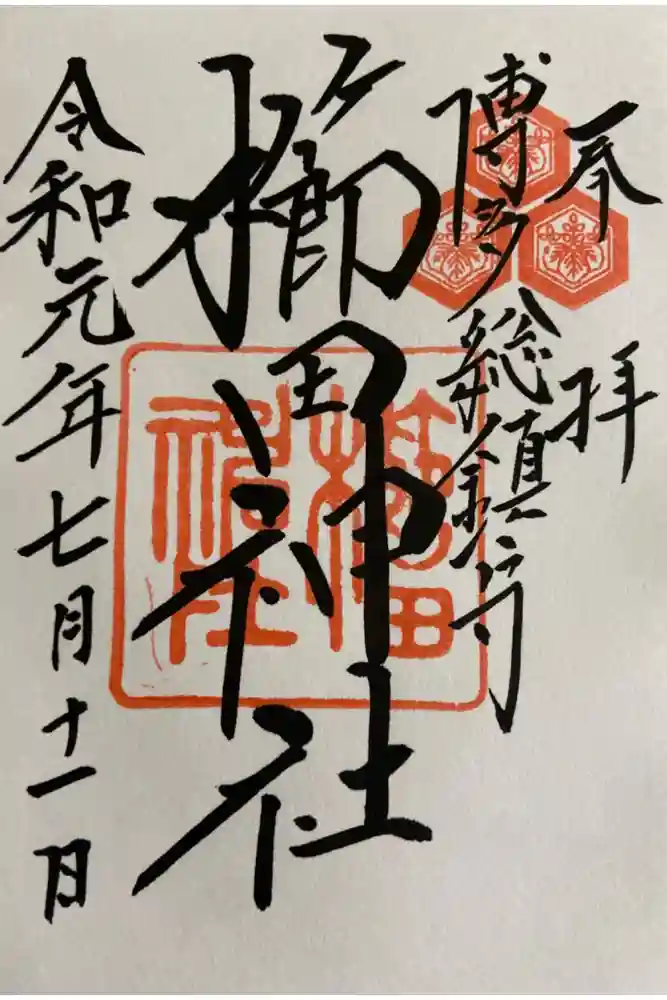 奉拝
博多総鎮守
櫛田神社
令和元年七月十一日
櫛田
神社